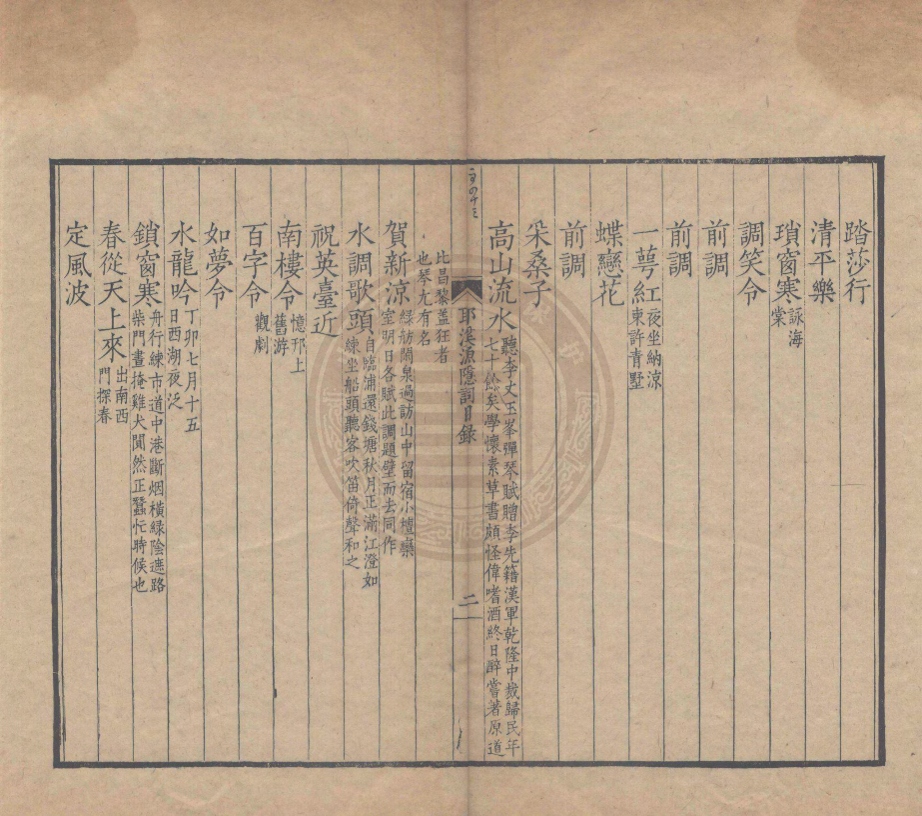 踏莎行
清平樂
瑣窗寒 詠海
棠
調笑令
前調
前調
一萼紅 夜坐納涼
柬許青墅
蝶戀花
前調
采桑子
高山流水 聽李丈玉峯彈琴賦贈李先籍漢軍乾隆中裁歸民年
七十餘矣學懷素草書頗怪偉嗜酒終日醉嘗著原道
耶溪漁隱詞目錄
二
比昌黎蓋狂者
也琴尢有名
賀新涼 綠舫閬泉過訪山中留宿小檀欒
室明日各賦此調題壁而去同作
水調歌頭 自臨浦還錢塘秋月正滿江澄如
練坐船頭聽客吹笛倚聲和之
祝英臺近
南樓令 憶邗上
舊游
百字令 觀劇
如夢令
水龍吟 丁卯七月十五
日西湖夜泛
鎖窗寒 舟行練市道中港斷烟橫綠陰遮路
柴門晝掩雞犬閴然正蠶忙時候也
春從天上來 出南西
門探春
定風波